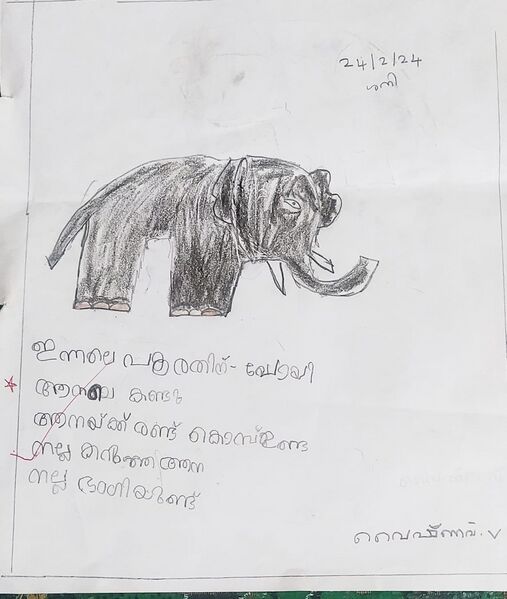 24/2/24
ശനി
ഇന്നലെ പൂരത്തിന് - പോയി
ആനയെ കണ്ടു
ആനയ്ക്ക് രണ്ട് കൊമ്പ്ഉണ്ട
നല്ല ആന
നല്ല ഭംഗിയുണ്ട്
വൈഷ്ണവ്. V